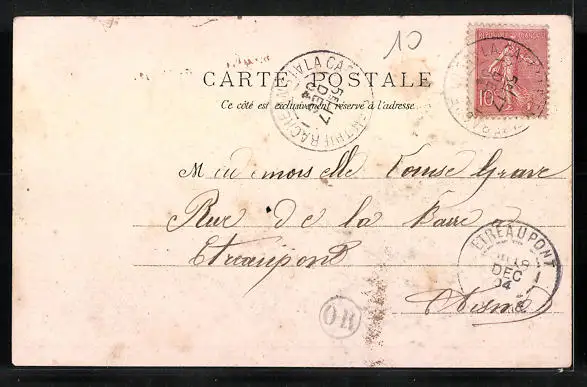 10
REPUBLIQUE FRANÇAISE
10
CARTE POSTALE
Ce côté est exclusivement réservé à l'adresse
LA CAPELLE EN THIERACHE
DEC
04
Mademoiselle Louise Grave
Rue de la
Etreaupont
Aisne
ETREAUPONT
DEC
04
OR